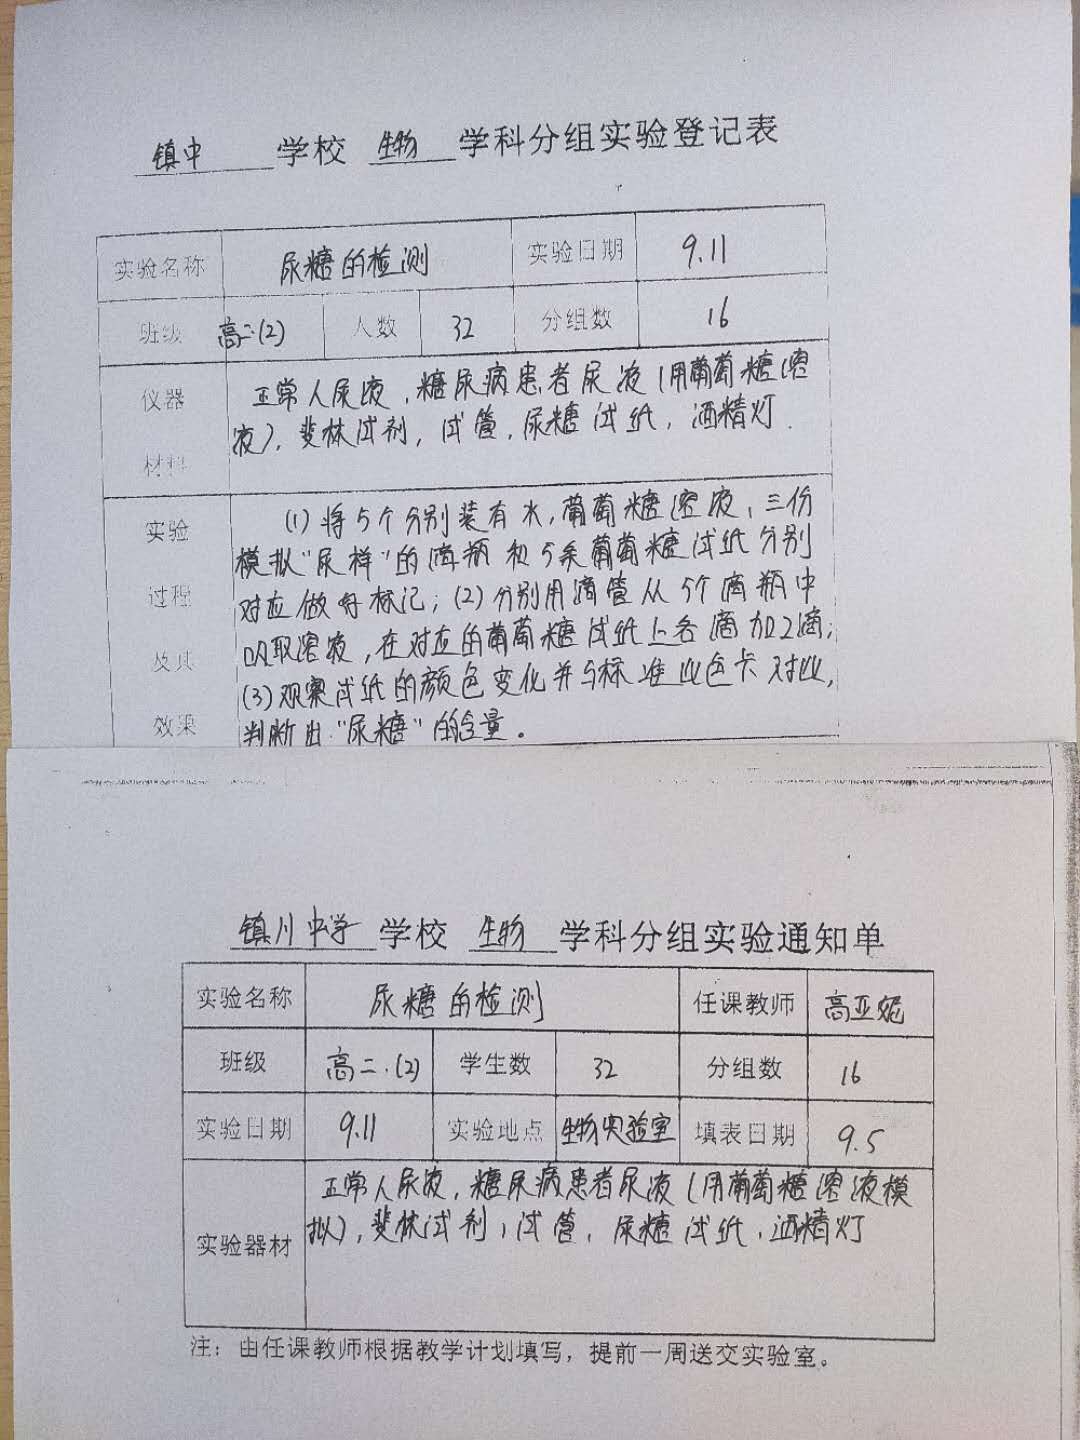 镇中 学校 生物 学科分组实验登记表
实验名称 尿糖的检测 实验日期 9.11
班级 高二(2) 人数 32 分组数 16
仪器 材料
正常人尿液,糖尿病患者尿液(用葡萄糖溶
液),斐林试剂,试管,尿糖试纸,酒精灯.
实验 过程 及其 效果
(1)将5个分别装有水,葡萄糖溶液,三份
模拟"尿样"的滴瓶和5条葡萄糖试纸分别
对应做好标记;(2)分别用滴管从5个滴瓶中
吸取溶液,在对应的葡萄糖试纸上各滴加2滴;
(3)观察试纸的颜色变化并与标准比色卡对比,
判断出"尿糖"的含量。
镇川中学 学校 生物 学科分组实验通知单
实验名称 尿糖的检测 任课教师 高亚妮
班级 高二.(2) 学生数 32 分组数 16
实验日期 9.11 实验地点 生物实验室 填表日期 9.5
实验器材
正常人尿液,糖尿病患者尿液(用葡萄糖溶液模
拟),斐林试剂,试管,尿糖试纸,酒精灯
注:由任课教师根据教学计划填写,提前一周送交实验室。